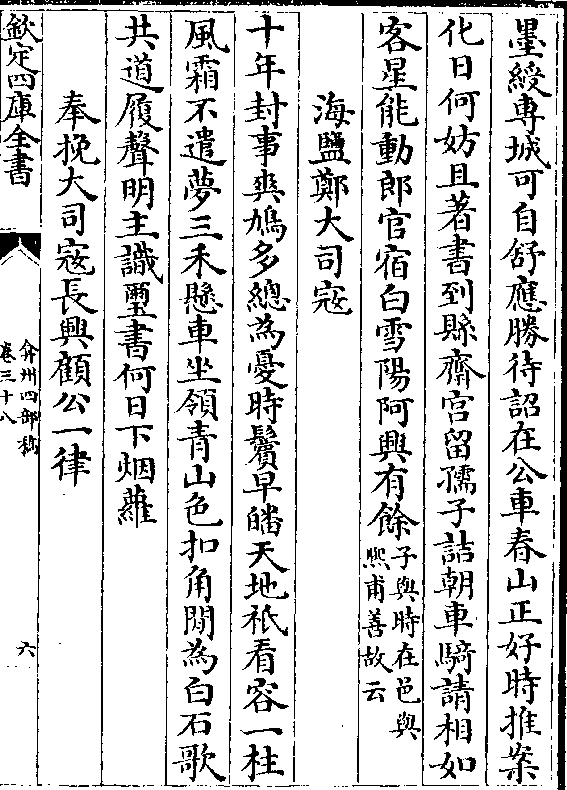 墨綬専城可自舒應勝待詔在公車春山正好時推案
化日何妨且著書到縣齋宫留孺子詰朝車騎請相如
客星能動郎官宿白雪陽阿興有餘子與時在邑與
熙甫善故云
海鹽鄭大司寇
十年封事爽鳩多總為憂時鬢早皤天地祇看容一柱
風霜不遣夢三禾懸車坐領青山色扣角閒為白石歌
共道履聲明主識璽書何日下烟蘿
奉挽大司寇長興顧公一律
欽定四庫全書
弇州四部稿
卷三十八
六